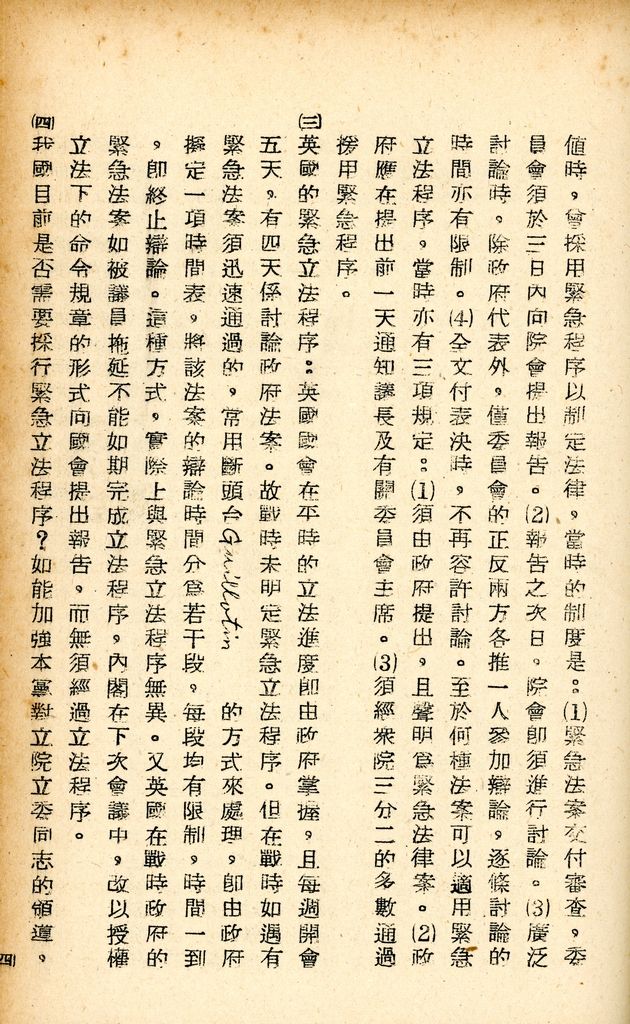 値時，會採用緊急程序以制定法律，當時的制度是：(1)緊急法案交付審查，委
員會須於三日內向院會提出報告。(2)報告之次日，院會即須進行討論。(3)廣泛
討論時，除政府代表外，僅委員會的正反兩方各推一人參加辯論，逐條討論的
時間亦有限制。(4)全文付表決時，不再容許討論。至於何種法案可以適用緊急
立法程序，當時亦有三項規定：(1)須由政府提出，且聲明爲緊急法律案。(2)政
府應在提出前一天通知議長及有關委員會主席。(3)須經衆院三分二的多數通過
援用緊急程序。
㈢英國的緊急立法程序：英國國會在平時的立法進度即由政府掌握，且每週開會
五天，有四天係討論政府法案。故戰時未明定緊急立法程序。但在戰時如遇有
緊急法案須迅速通過的，常用斷頭台Guillotin的方式來處理，即由政府
擬定一項時間表，將該法案的辯論時間分爲若干段，每段均有限制，時間一到
，即終止辯論。這種方式，實際上與緊急立法程序無異。又英國在戰時政府的
緊急法案如被議員拖延不能如期完成立法程序，內閣在下次會議中，改以授權
立法下的命令規章的形式向國會提出報告，而無須經過立法程序。
㈣我國目前是否需要採行緊急立法程序？如能加強本黨對立院立委同志的領導，
四